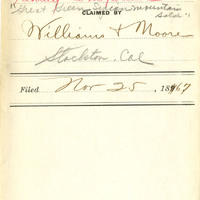 "Great Green Sycan Mountain
Salve"
CLAIMED BY
Williams & Moore
Stockton, Cal
Filed Nov 25, 1867